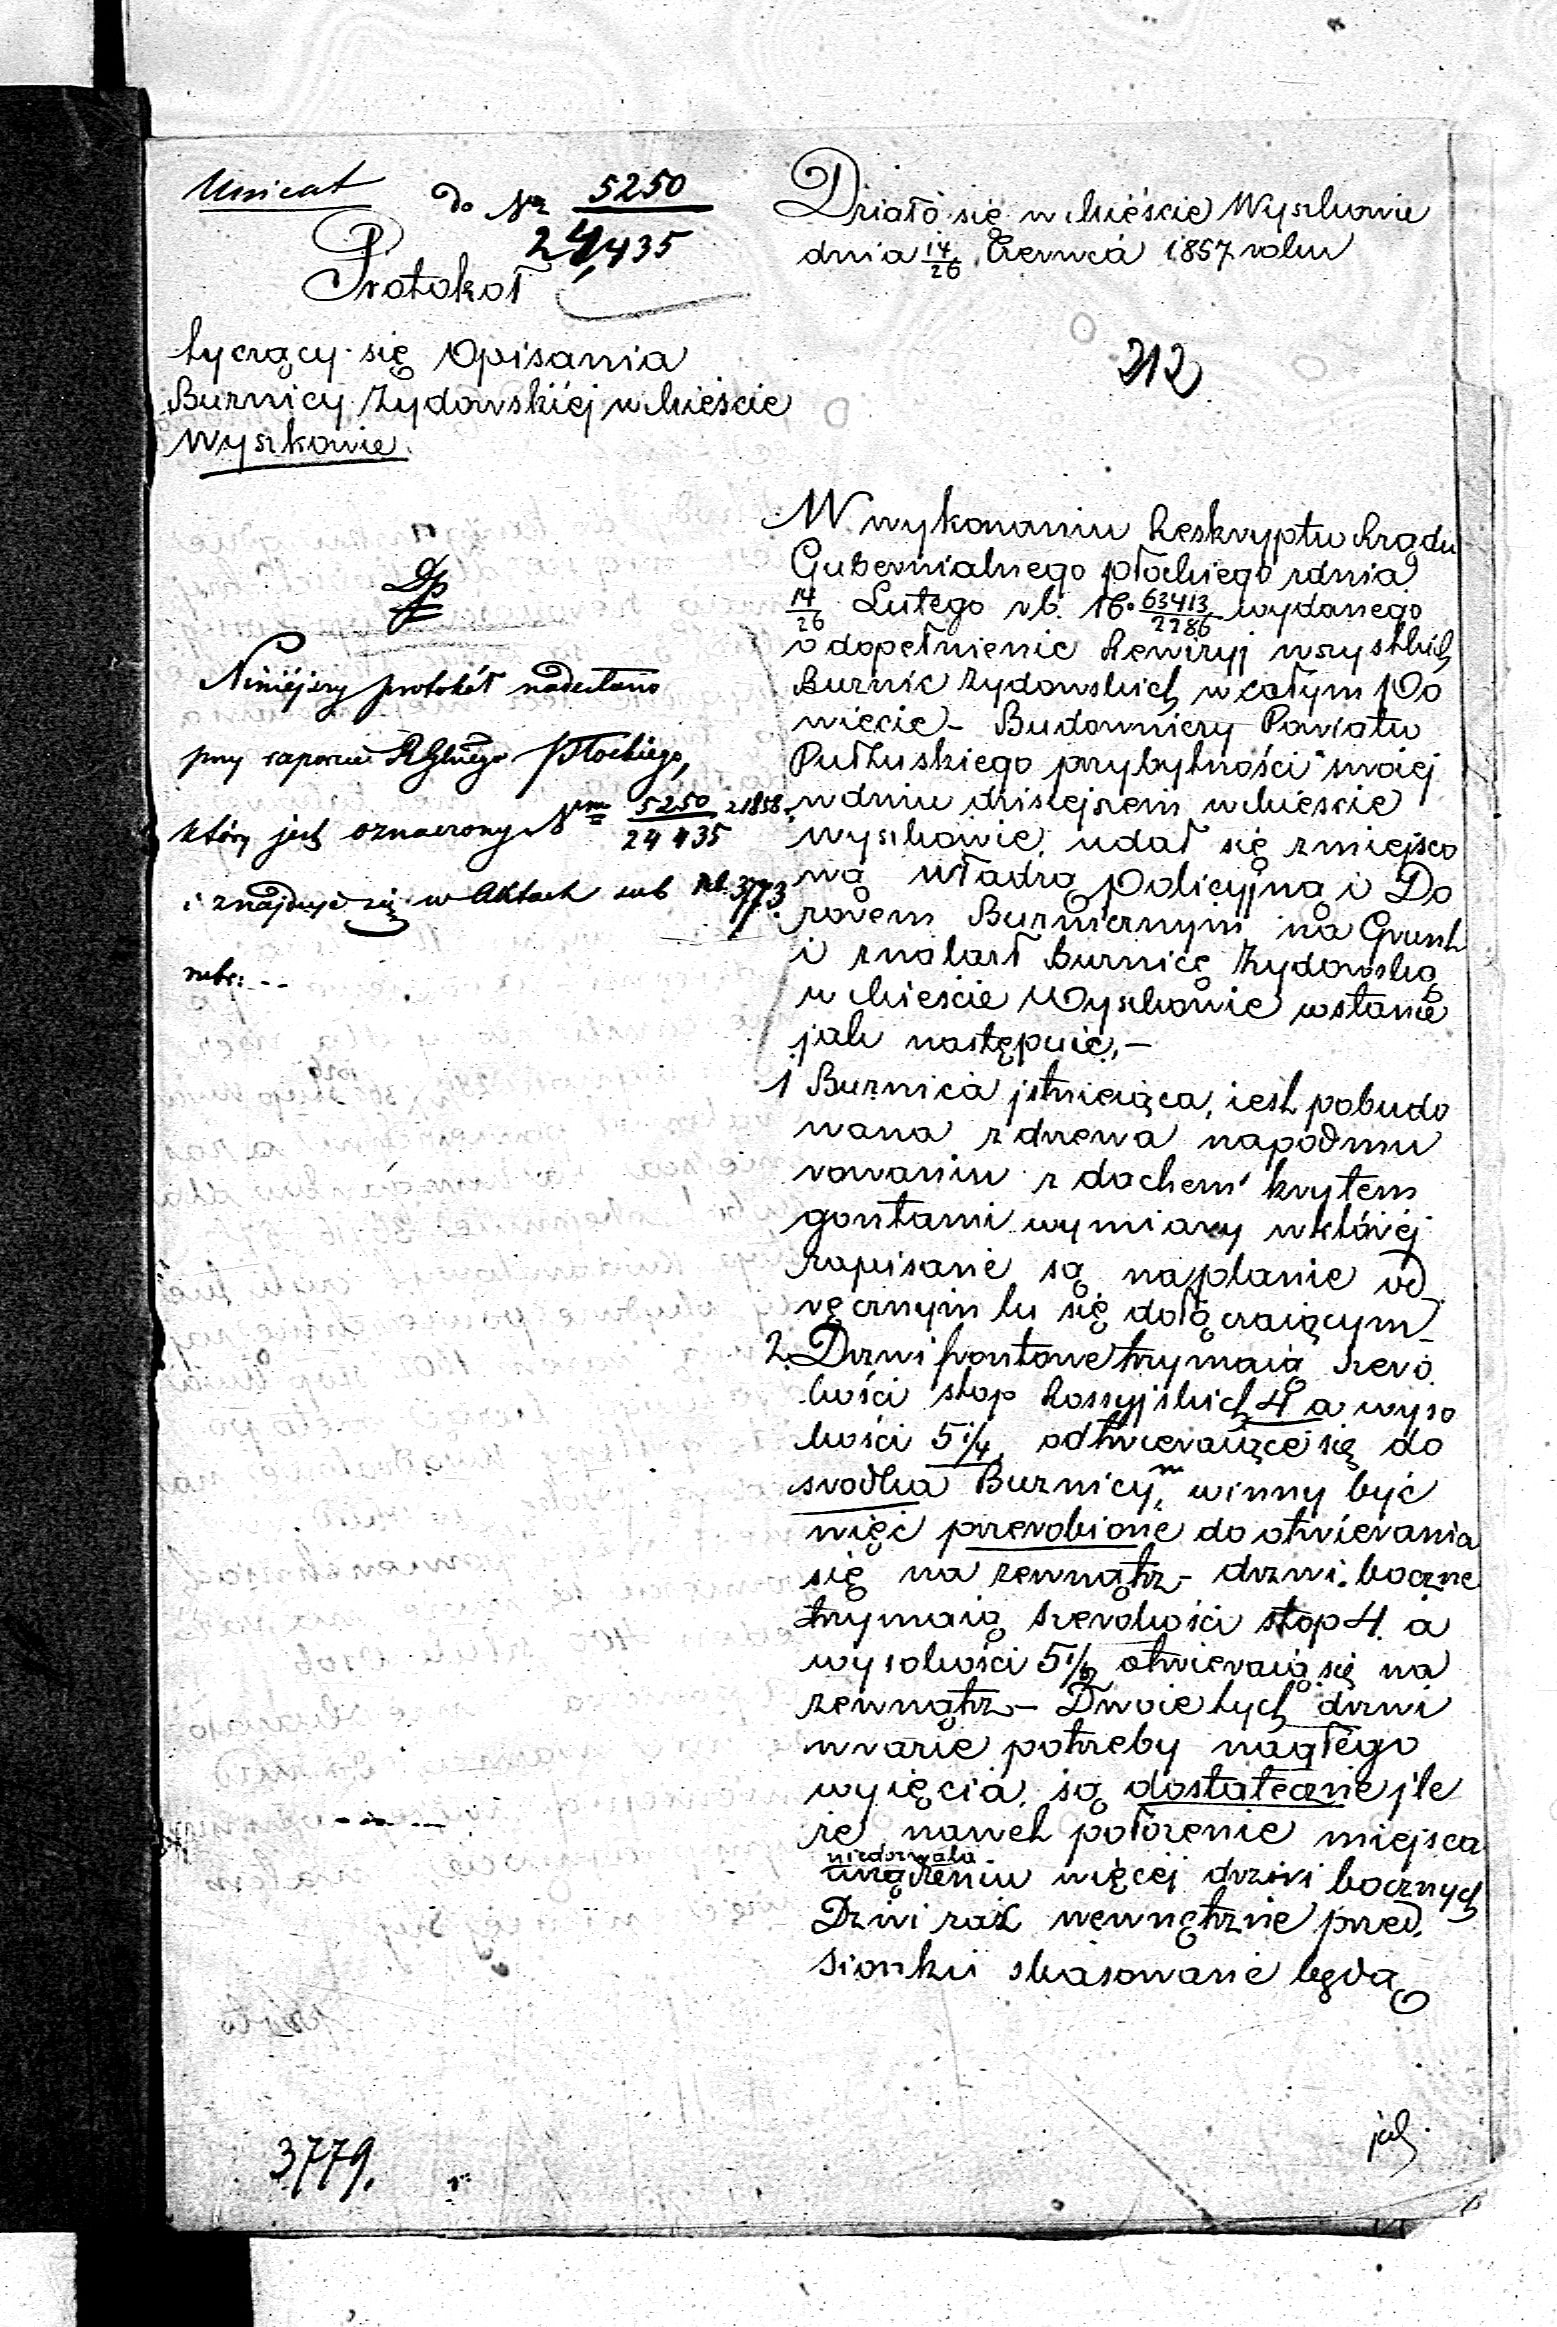 Unicat do Nr 5250
24,435
Protokoł
tyczący się Opisania
Buznicy Żydowskiéj w Mieście
Wyszkowie.
Niniéjszy protokół nadesłano
przy raporcie RGlnego Płockiego,
który jest oznaczony Nrm 5250/24435 z 1858.
i znajduje się w Aktach sub Nr 3773.
rube: --
3779.
Działo się w Mieście Wyszkowie
dnia 14/26 Czerwca 1857 roku
212
W wykonaniu Reskryptu Rządu
Gubernialnego płockiego zdnia
14/26 Lutego rb. No 63413/2286 wydanego
o dopełnienie Rewizyj wszystkich
Buznic żydowskich w całym Po
wiecie – Budowniczy Powiatu
Pułtuskiego przybytności swoiej
w dniu dzisiejszem w Mieście
wyszkowie, udał się z miejsco
wą władzą Policyjną i Do
zorem Buznicznym na Grunt
i znalazł Buznicę żydowską
w Mieście Wyszkowie w stanie
jak następuie, –
1 Buznica jstnieiąca, iest pobudo
wana z drzewa na podmu
rowaniu z dachem krytem
gontami wymiary w któréj
zapisane są na planie od
ręcznym tu się dołączaiącym –
2. Drzwi frontowe trzymaią szero
kości stop Rossyjskich 4 a wyso
kości 5 1/4, odtwieraiące się do
srodka Buznicy, winny być
więc przerobione do otwierania
się na zewnątrz – drzwi boczne
trzymaią szerokości stop 4. a
wysokości 5 1/2 otwieraią się na
zewnątrz – Dwoie tych drzwi
w razie potrzeby nagłego
wyięcia, są dostateczne jle
że nawet położenie miejsca
niedozwala
urządzeniu więcéj drzwi bocznych
Drzwi zaś wewnętrzne przed
sionku skasowane będą
jak